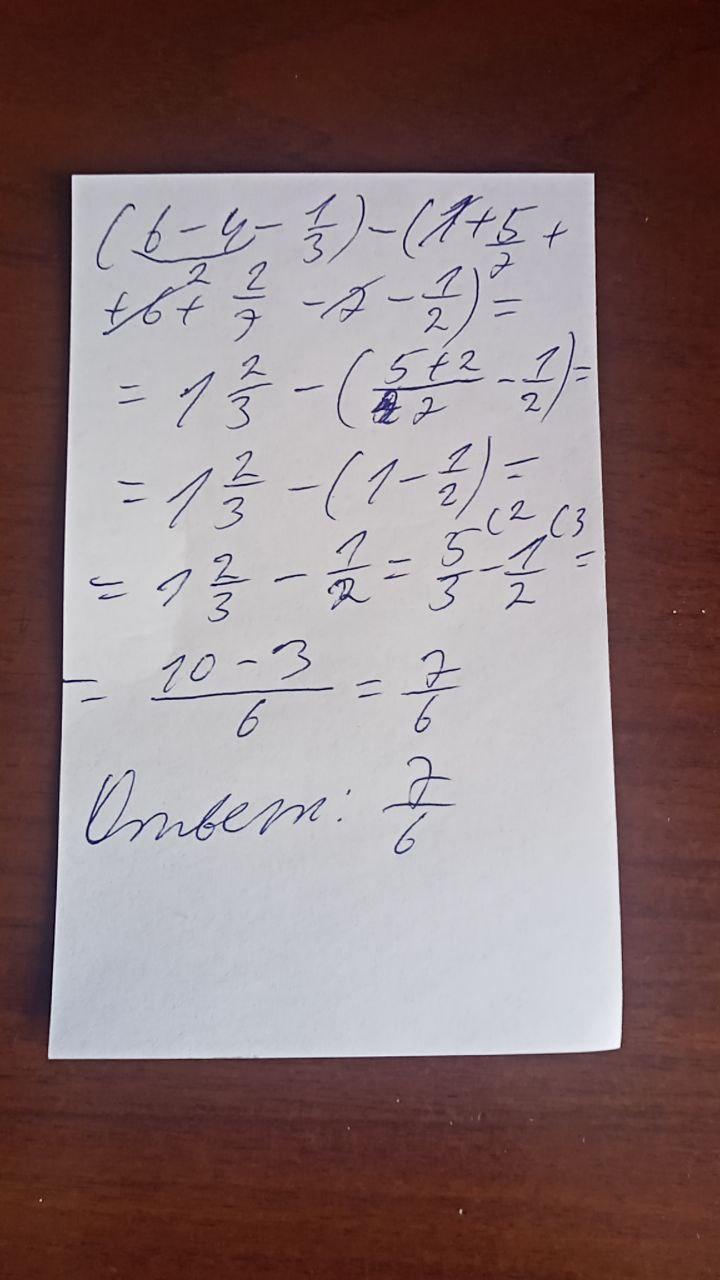 (6 - 4 - 1/3) - (1 + 5/7 +
2
+ 6 + 2/7 - 7 - 1/2) =
= 1 2/3 - ((5+2)/7 - 1/2) =
= 1 2/3 - (1 - 1/2) =
= 1 2/3 - 1/2 = 5/3 (2 - 1/2 (3 =
= (10 - 3)/6 = 7/6
Ответ: 7/6